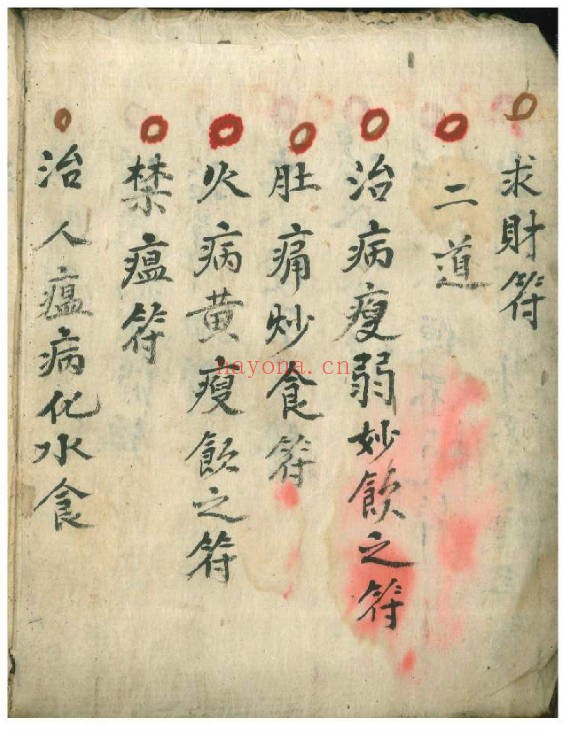 求財符
二道
治病瘦弱妙飲之符
肚痛炒食符
火病黄瘦飲之符
禁瘟符
治人瘟病化水食
nayona.cn